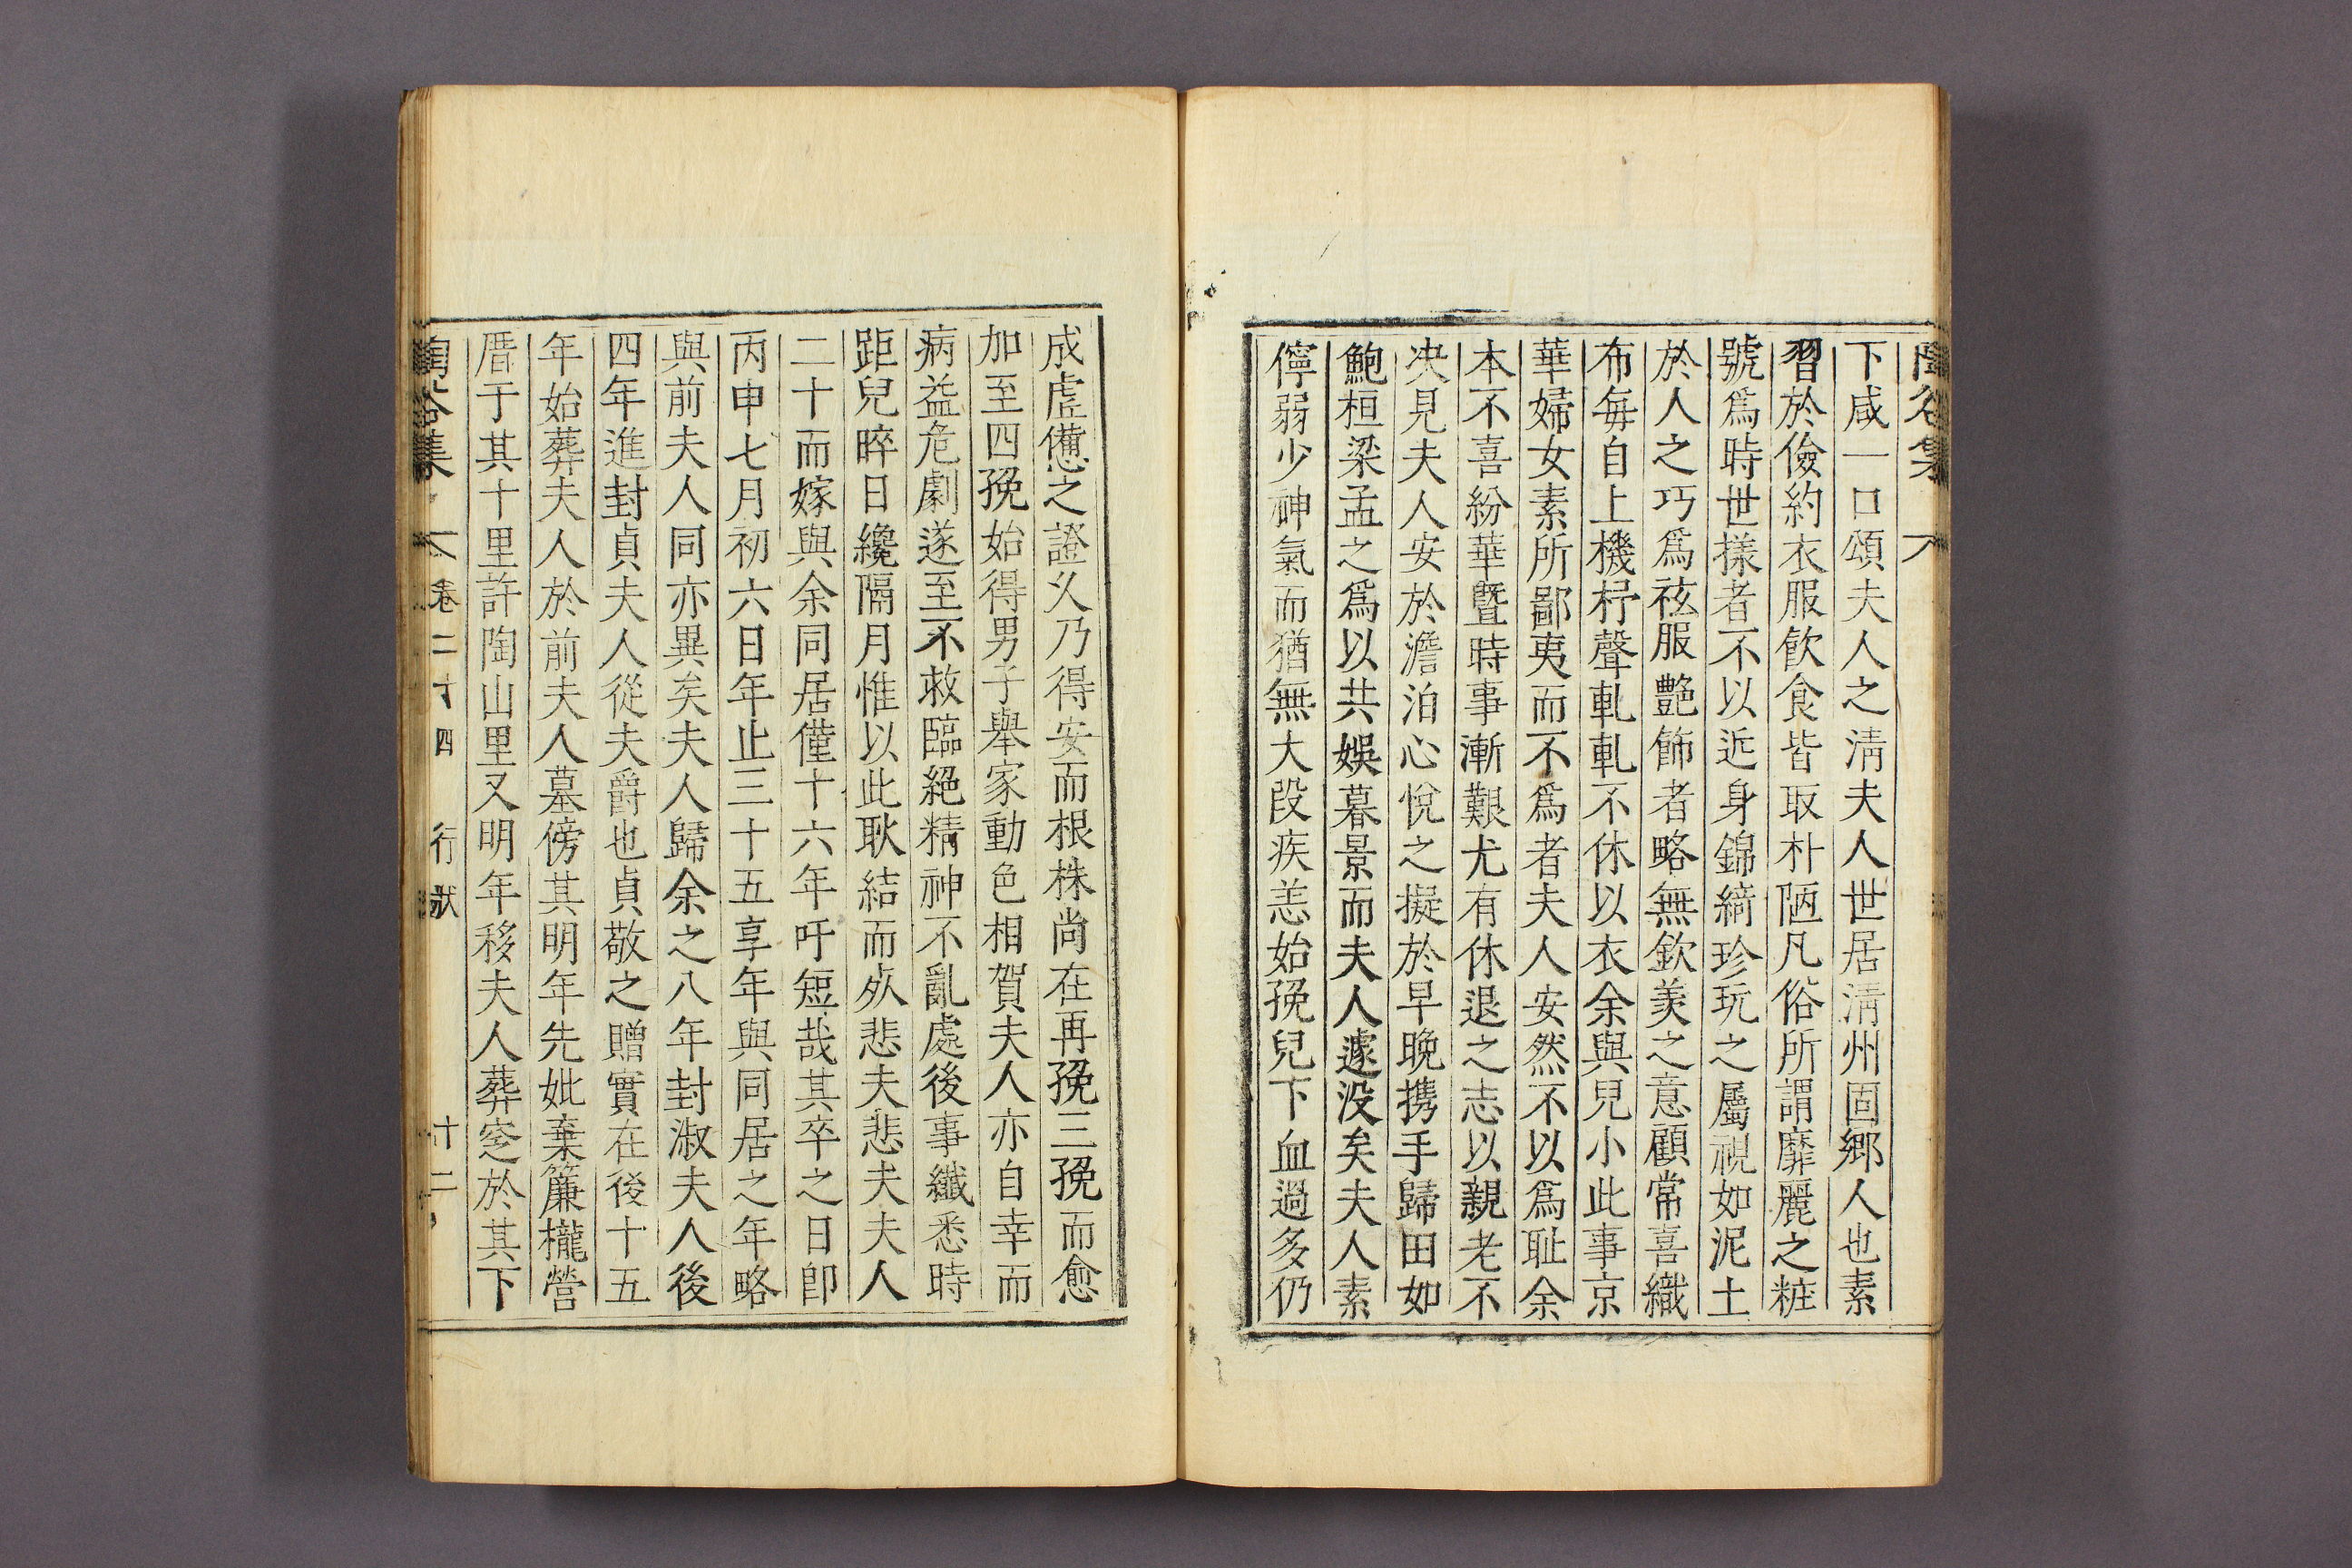 陶谷集
下咸一口頌夫人之淸夫人世居淸州固鄕人也素
習於儉約衣服飮食皆取朴陋凡俗所謂靡麗之粧
號爲時世㨾者不以近身錦綺珍玩之屬視如泥土
於人之巧爲袨服艶飾者略無欽羨之意顧常喜織
布每自上機杼聲軋軋不休以衣余與兒小此事京
華婦女素所鄙夷而不爲者夫人安然不以爲耻余
本不喜紛華曁時事漸艱尤有休退之志以親老不
决見夫人安於澹泊心悅之擬於早晩携手歸田如
鮑桓梁孟之爲以共娛暮景而夫人遽沒矣夫人素
儜弱少神氣而猶無大段疾恙始㝃兒下血過多仍
成虛憊之證乆乃得安而根株尙在再㝃三㝃而愈
加至四㝃始得男子舉家動色相賀夫人亦自幸而
病益危劇遂至不救臨絕精神不亂處後事纖悉時
距兒晬日纔隔月惟以此耿結而㱕悲夫悲夫夫人
二十而嫁與余同居僅十六年吁短哉其卒之日卽
丙申七月初六日年止三十五享年與同居之年略
與前夫人同亦異矣夫人歸余之八年封淑夫人後
四年進封貞夫人從夫爵也貞敬之贈實在後十五
年始葬夫人於前夫人墓傍其明年先妣棄簾櫳營
厝于其十里許陶山里又明年移夫人葬窆於其下
陶谷集 卷二十四 行狀 十二